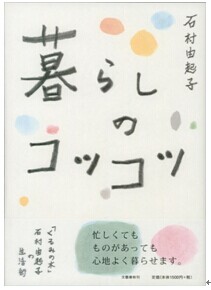 石村由起子
暮らし
の
コツコツ
忙しくても
ものがあっても
心地よく暮らせます。
「くるみの木」
石村由起子
の
生活術
文藝春秋刊
定価(本体1500円+税)